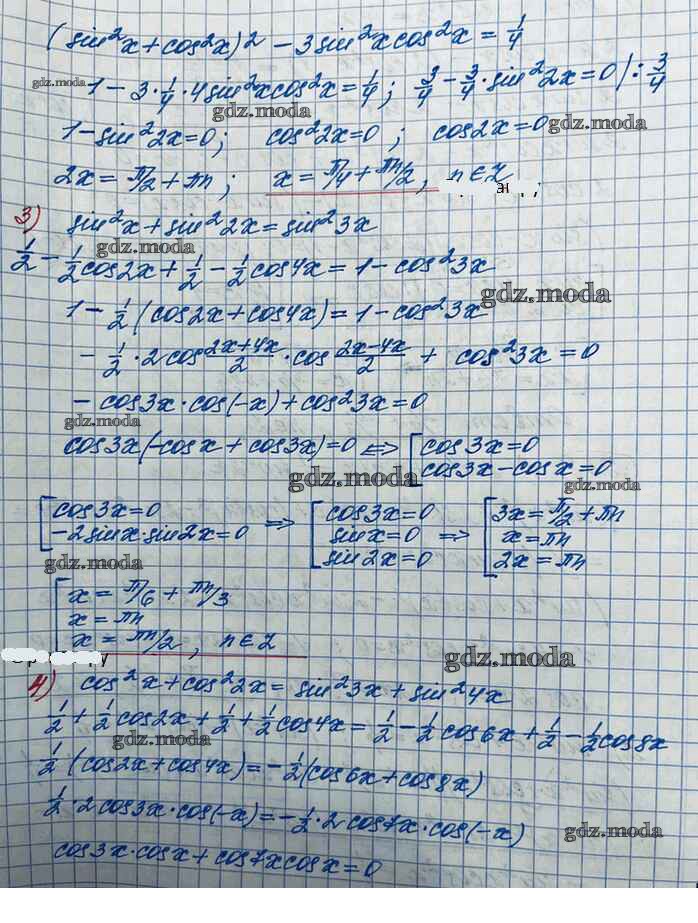 (sin²x+cos²x)2 - 3sin²xcos²x = 1/4
1 - 3·1/4·4sin²xcos²x = 1/4; 3/4 - 3/4·sin²2x = 0 |: 3/4
gdz.moda
gdz.moda
gdz.moda
1 - sin²2x = 0; cos²2x = 0; cos2x = 0
2x = π/2 + πn; x = π/4 + πn/2, n∈Z
3) sin²x + sin²2x = sin²3x
gdz.moda
1/2 - 1/2cos2x + 1/2 - 1/2cos4x = 1 - cos²3x
gdz.moda
1 - 1/2(cos2x + cos4x) = 1 - cos²3x
gdz.moda
- 1/2·2cos (2x+4x)/2 · cos (2x-4x)/2 + cos²3x = 0
- cos3x·cos(-x) + cos²3x = 0
gdz.moda
cos3x(-cosx + cos3x) = 0 ⟺ [cos3x = 0
cos3x - cosx = 0
gdz.moda
gdz.moda
[cos3x = 0
-2sinx·sin2x = 0 ⟹ [cos3x = 0
sinx = 0
sin2x = 0 ⟹ [3x = π/2 + πn
x = πn
2x = πn
gdz.moda
[x = π/6 + πn/3
x = πn
x = πn/2, n∈Z
gdz.moda
4) cos²x + cos²2x = sin²3x + sin²4x
1/2 + 1/2cos2x + 1/2 + 1/2cos4x = 1/2 - 1/2cos6x + 1/2 - 1/2cos8x
gdz.moda
1/2(cos2x + cos4x) = -1/2(cos6x + cos8x)
1/2·2cos3x·cos(-x) = -1/2·2cos7x·cos(-x)
gdz.moda
cos3x·cosx + cos7xcosx = 0